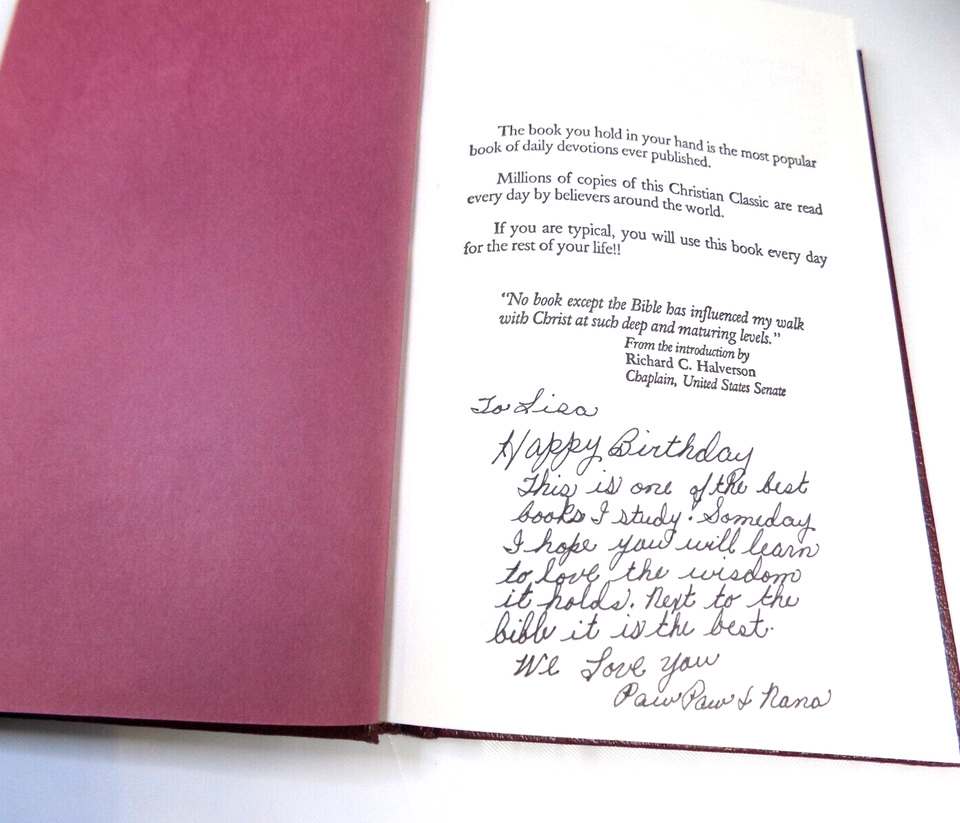 The book you hold in your hand is the most popular
book of daily devotions ever published.
Millions of copies of this Christian Classic are read
every day by believers around the world.
If you are typical, you will use this book every day
for the rest of your life!!
“No book except the Bible has influenced my walk
with Christ at such deep and maturing levels.”
From the introduction by
Richard C. Halverson
Chaplain, United States Senate
To Lisa
Happy Birthday
This is one of the best
books I study! Someday
I hope you will learn
to love the wisdom
it holds. Next to the
bible it is the best.
We Love you
PawPaw & Nana